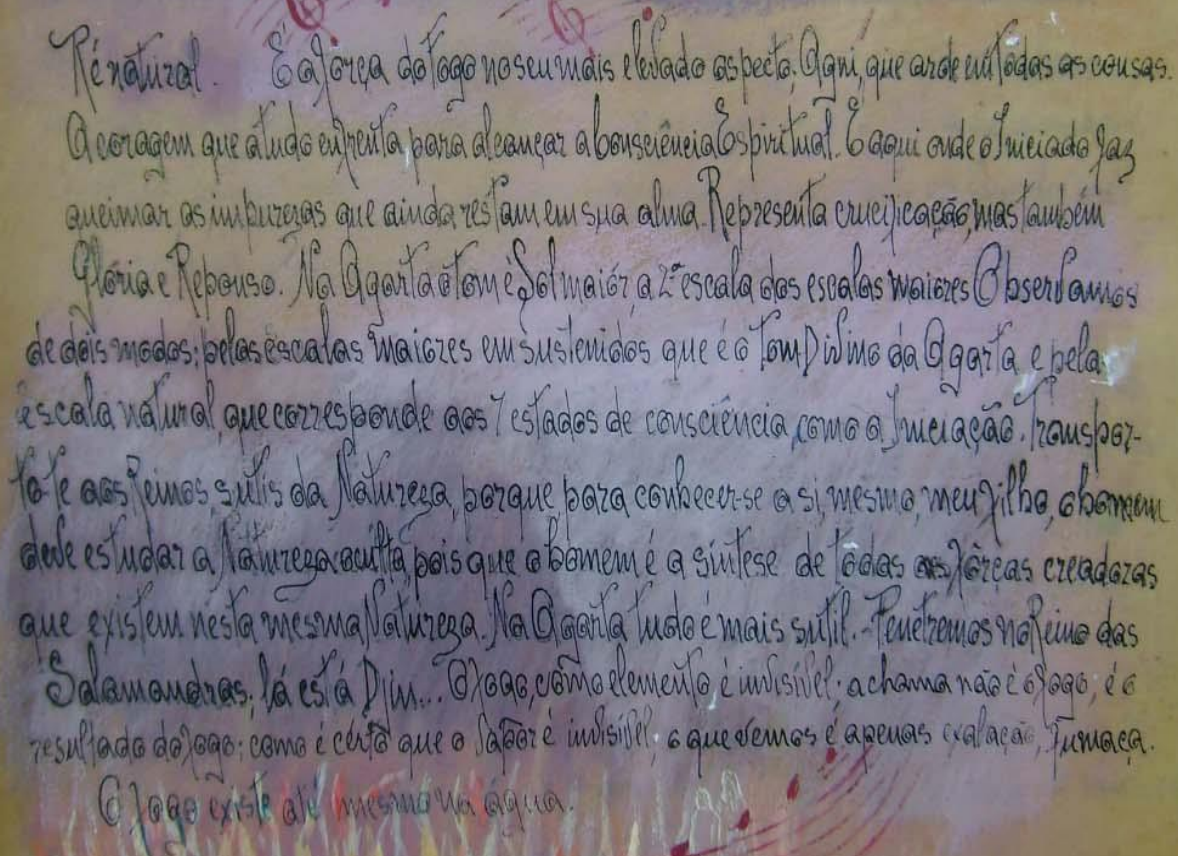 Ré natural. É a fôrça do fogo no seu mais elevado aspecto. Agni, que arde em tôdas as cousas.
A coragem que a tudo enfrenta para alcançar a Consciência Espiritual. E aqui onde o Iniciado faz
queimar as impurezas que ainda restam em sua alma. Representa crucificação, mas também
Glória e Repouso. Na Agarta o tom é Sol maior a 2ª escala das escalas maiores Observamos
de dois modos; pelas escalas maiores em sustenidos que é o Tom Divino da Agarta e pela
escala natural, que corresponde aos 7 estados de consciência, como a Iniciação. Transpor-
ta-te aos Reinos sutis da Natureza, porque para conhecer-se a si mesmo, meu filho, o homem
deve estudar a Natureza oculta, pois que o homem é a síntese de tôdas as fôrças creadoras
que existem nesta mesma Natureza. Na Agarta tudo é mais sutil. - Penetremos no Reino das
Salamandras, lá está Djin... O fogo, como elemento, é invisível; a chama não é o fogo, é o
resultado do fogo; como é certo que o vapor é invisível; o que vemos é apenas exalação, fumaça.
O fogo existe até mesmo na água.